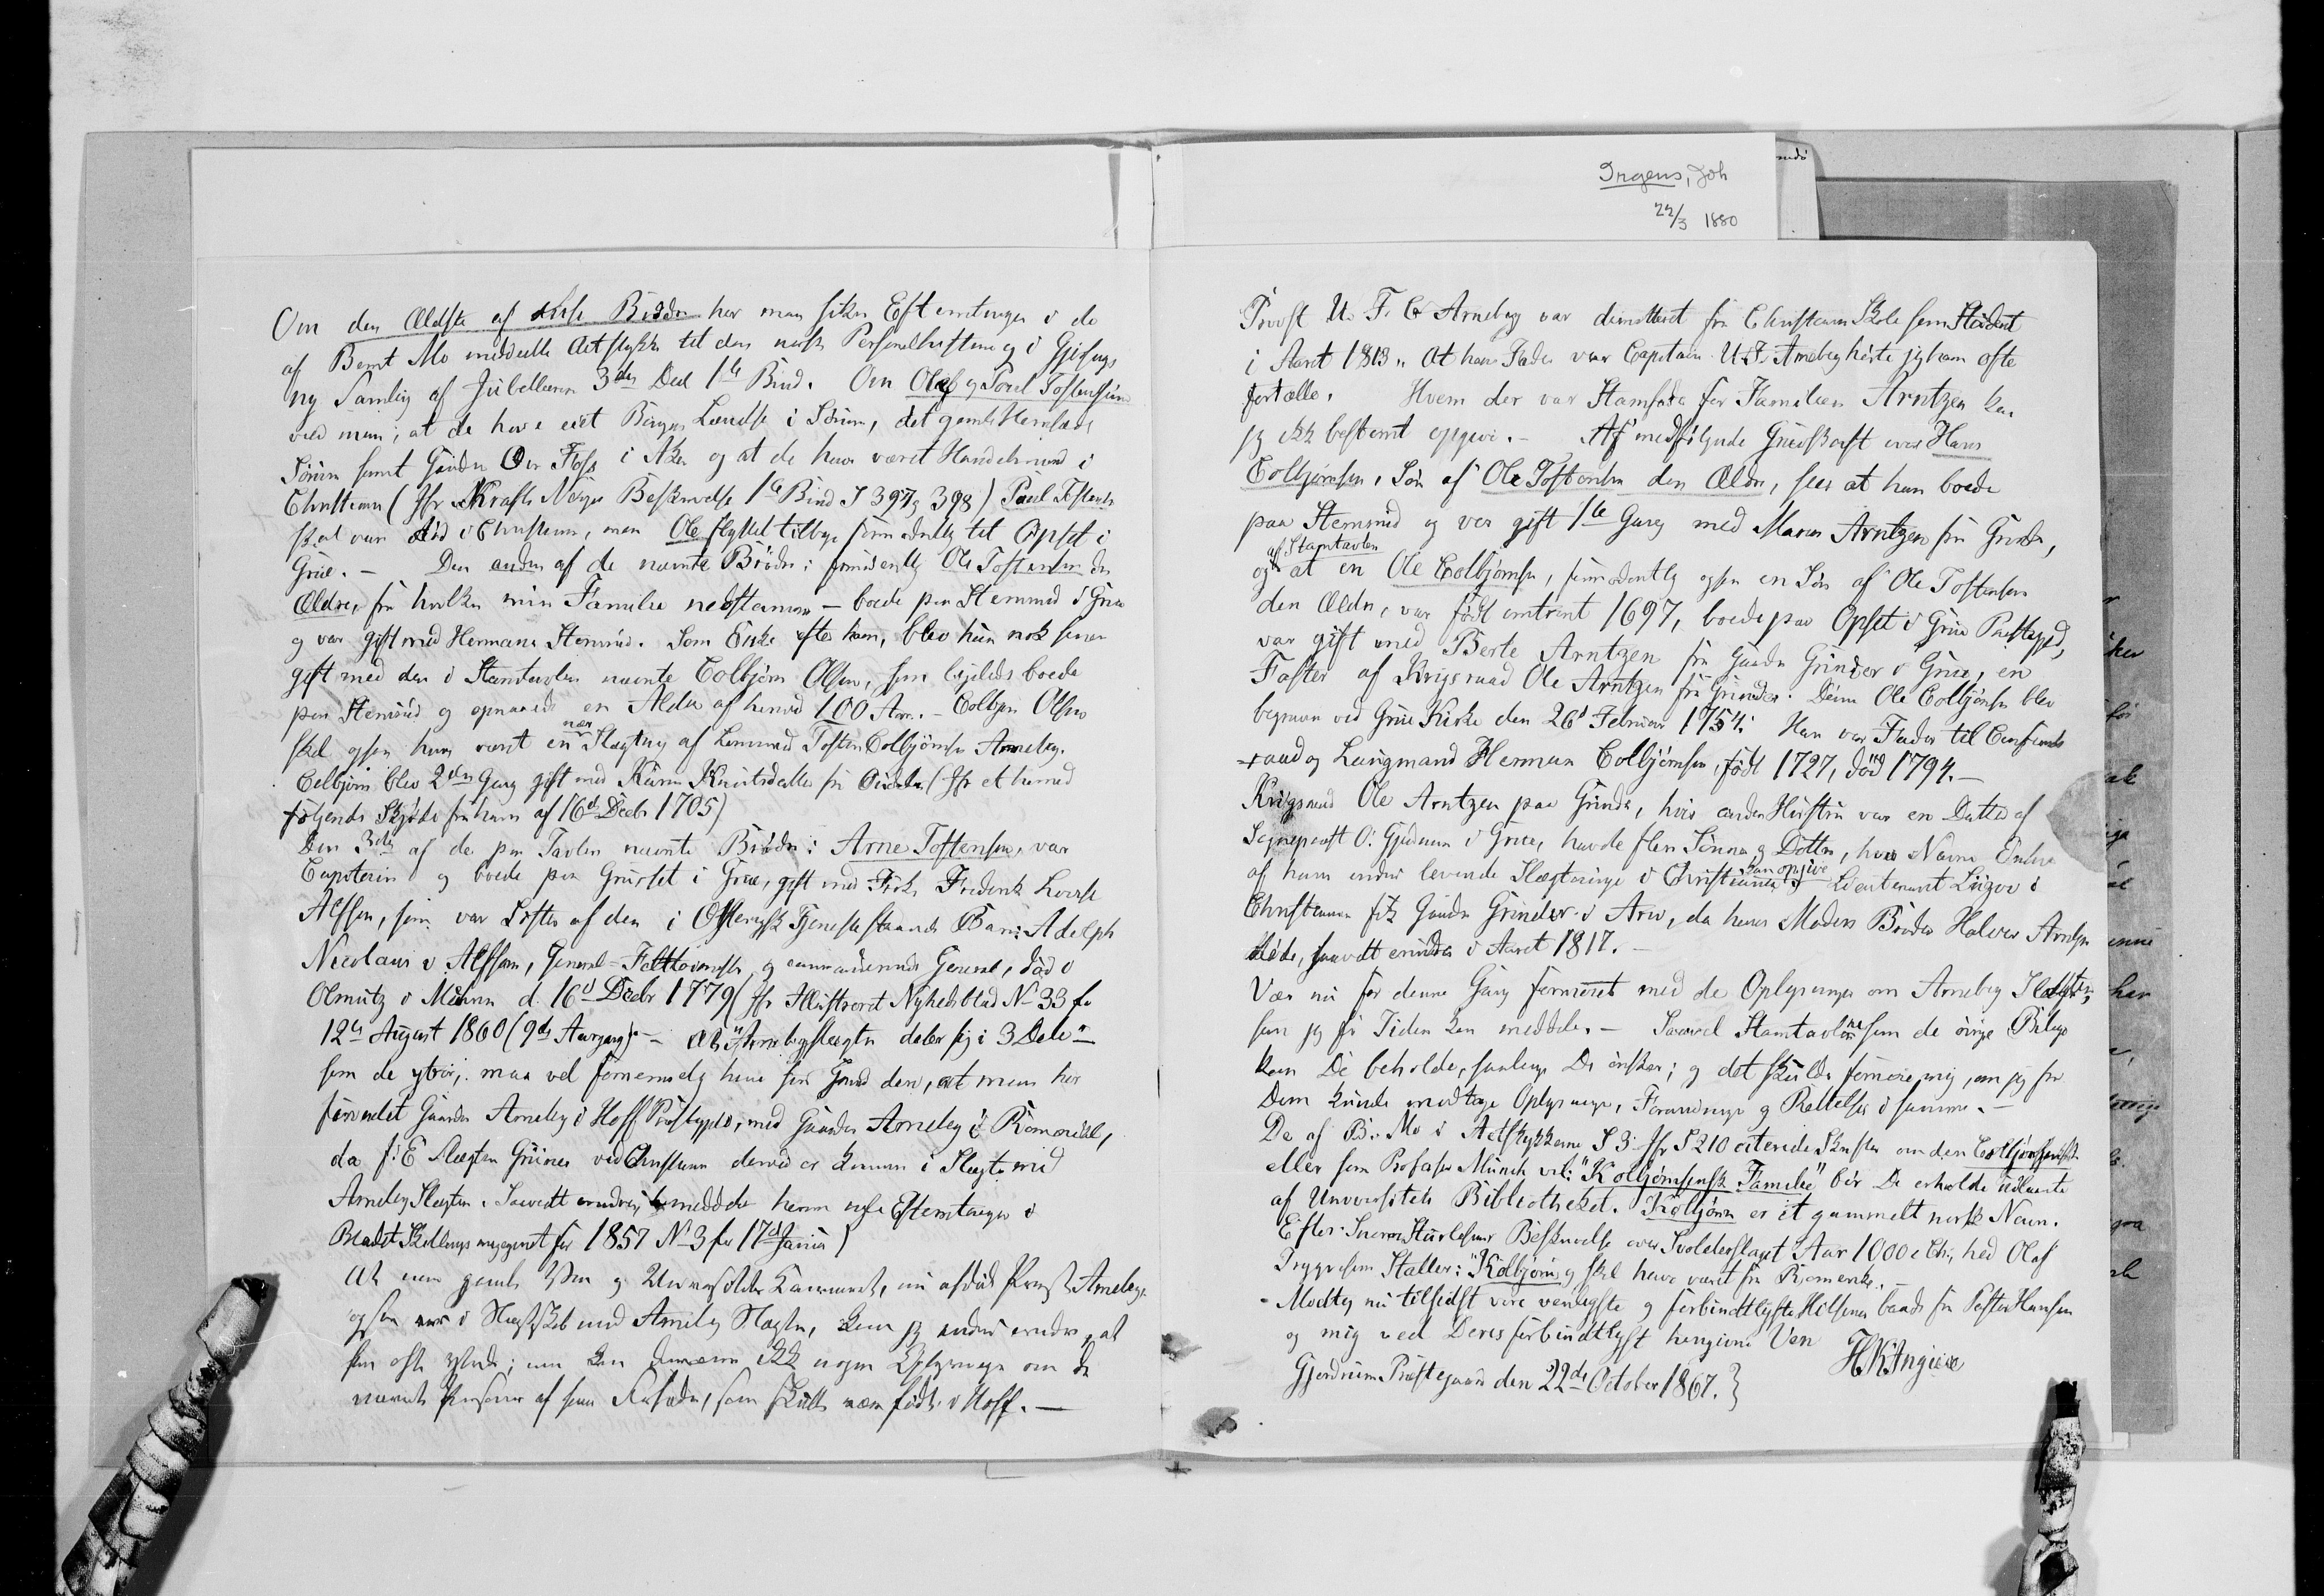 Irgens, Joh
22/3 1880
Om den Ældste af disse Brødre har man sikre Efterretninger i de
af Bernt Mo meddeelte Aktstykker til den norske Personalhistorie og i Gjesings
ny Samling af Jubellærere 3die Deel 1ste Bind. Om Oluf og Poul Tostensen
veed man, at de have eiet Borgen Lændse i Sörum, det gamle
Sörum samt Gaarden i Aker og at de have været Handelsmænd i
Christiania (Jfr Krafts Norges Beskrivelse 1ste Bind S 397 og 398) Poul Tostensen
skal være død i Christiania, men Ole flyttet tilbage formodentlig til Opset i
Grue. – Den anden af de nævnte Brödre: formodentlig Ole Tostensen den
Ældre, fra hvilken min Familie nedstammer – boede paa Stemsrud i Grue
og var gift med Hermana Stemsrud. Som Enke efter ham, blev hun nok senere
gift med den i Stamtavlen nævnte Colbjörn Olsen, som ligeledes boede
paa Stemsrud og opnaaede en Alder af henved 100 Aar. – Colbjörn Olsen
skal ogsaa have været en nær Slægtning af Lensmand Tosten Colbjörnsen Arneberg.
Colbjörn blev 2den Gang gift med Karen Knudsdatter fra (Jfr et hermed
fölgende Skjöde fra ham af 16d Decbr 1705)
Den 3die af de paa Tavlen nævnte Brödre: Arne Tostensen, var
Capitain og boede paa Grueset i Grue, gift med Frk. Frederik Lovise
Alfson, som var Söster af den i Østerrigsk Tjeneste staaende Baron Adolph
Nicolaus v Alfson, General-Felttöimester og commanderende General, död i
Olmütz i Mähren d. 16d Decbr 1779 (Jfr Illustreret Nyhedsblad No 33 for
12te August 1860 (9de Aargang). – At "Arnebergslægten deler sig i 3 Dele"
som de ytrer, maa vel fornemmelig have sin Grund deri, at man har
forvexlet Gaarden Arneberg i Hoff Præstegjeld, med Gaarden Arneberg i Romerike,
da f: E Slægten Grüner ved Christiania derved er kommen i Slægt med
Arneberg Slægten. Saavidt erindres meddeler herom nogle Efterretninger i
Bladet Skillings magazinet for 1857 No 3 for 17d Januar)
At min gamle Ven og Universitets Kammerat, nu afdöde Provst Arneberg
ogsaa var i Slægtskab med Arneberg Slægten, kan jeg endnu erindre, at
han ofte yttrede; men kan derimod ikke nogen Oplysninger om de
nævnte Personer af hans Forfædre, som skulle være födte i Hoff. –
Provst U. F. C Arneberg var dimitteret fra Christiania Skole som Student
i Aaret 1813. At hans Fader var Capitain U. F. Arneberg hörte jeg ham ofte
fortælle. Hvem der var Stamfader for Familien Arntzen kan
jeg ikke bestemt opgive. – Af medfölgende Gravskrift over Hans
Colbjörnsen, Sön af Ole Tostensen den Ældre, sees at han boede
paa Stemsrud og var gift 1ste Gang med Maren Arntzen fra Grinder,
og af Stamtavlen at en Ole Colbjörnsen, formodentlig ogsaa en Sön af Ole Tostensen
den Ældre, var födt omtrent 1697, boede paa Opset i Grue Præstegjeld,
var gift med Berte Arntzen fra Gaarden Grinder i Grue, en
Faster af Krigsraad Ole Arntzen fra Grinder. Denne Ole Colbjörnsen blev
begraven ved Grue Kirke den 26d Februar 1754. Han var Fader til
raad og Laugmand Herman Colbjörnsen, födt 1727, död 1794. –
Krigsraad Ole Arntzen paa Grinder, hvis anden Hustru var en Datter af
Sogneprest O. Gjedrum i Grue, havde flere Sönner og Döttre, hvis Navne Enkerne
af hans endnu levende Slægtninge i Christiania kan opgive Lieutenant Lützow i
Christiania fik Gaarden Grinder i Arv, da hans Moders Broder Halvor Arntzen
döde, saavidt erindres i Aaret 1817. –
Vær nu for denne Gang fornöiet med de Oplysninger om Arneberg Slægten,
som jeg for Tiden kan meddele. – Saavel Stamtavlerne som de övrige Bilage
kan De beholde, saalænge De önsker; og det skulde fornöie mig, om jeg fra
Dem kunde modtage Oplysninger, Forandringer og Rettelser i samme. –
De af B. Mo i Aktstykkerne S 3 Jfr S 210 citerede Skrifter om den Colbjörnsenske
eller som Professor Munch vil: "Kolbjörnsensk Familie" bör De erholde udlaante
af Universitets Bibliotheket. Kolbjörn er et gammelt norsk Navn.
Efter Snorre Sturlesons Beskrivelse over Svolderslaget Aar 1000 e Chr., hed Olaf
Trygvesons Staller: "Kolbjörn" og skal have været fra Romerike. –
– Modtag nu tilsidst vore venligste og forbindtligste Hilsener baade fra Pastor Hansen
og mig ved Deres forbindtligst hengivne Ven
H K Angiere
Gjerdrum Præstegaard den 22de October 1867.